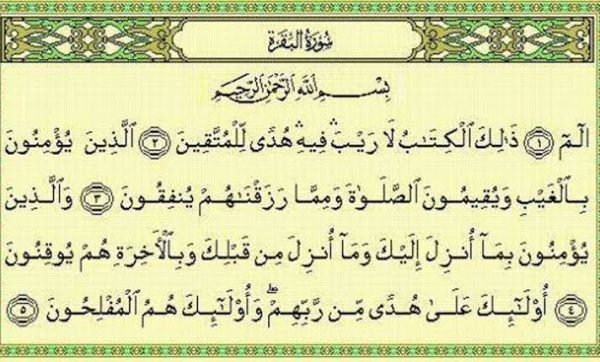 سُورَةُ البَقَرَةِ
بِسْمِ اللَّهِ الرَّحْمَٰنِ الرَّحِيمِ
الٓمٓ ۝١ ذَٰلِكَ ٱلْكِتَـٰبُ لَا رَيْبَ ۛ فِيهِ ۛ هُدًى لِّلْمُتَّقِينَ ۝٢ ٱلَّذِينَ يُؤْمِنُونَ
بِٱلْغَيْبِ وَيُقِيمُونَ ٱلصَّلَوٰةَ وَمِمَّا رَزَقْنَـٰهُمْ يُنفِقُونَ ۝٣ وَٱلَّذِينَ
يُؤْمِنُونَ بِمَآ أُنزِلَ إِلَيْكَ وَمَآ أُنزِلَ مِن قَبْلِكَ وَبِٱلْأَخِرَةِ هُمْ يُوقِنُونَ
۝٤ أُوْلَـٰٓئِكَ عَلَىٰ هُدًى مِّن رَّبِّهِمْ ۖ وَأُوْلَـٰٓئِكَ هُمُ ٱلْمُفْلِحُونَ ۝٥